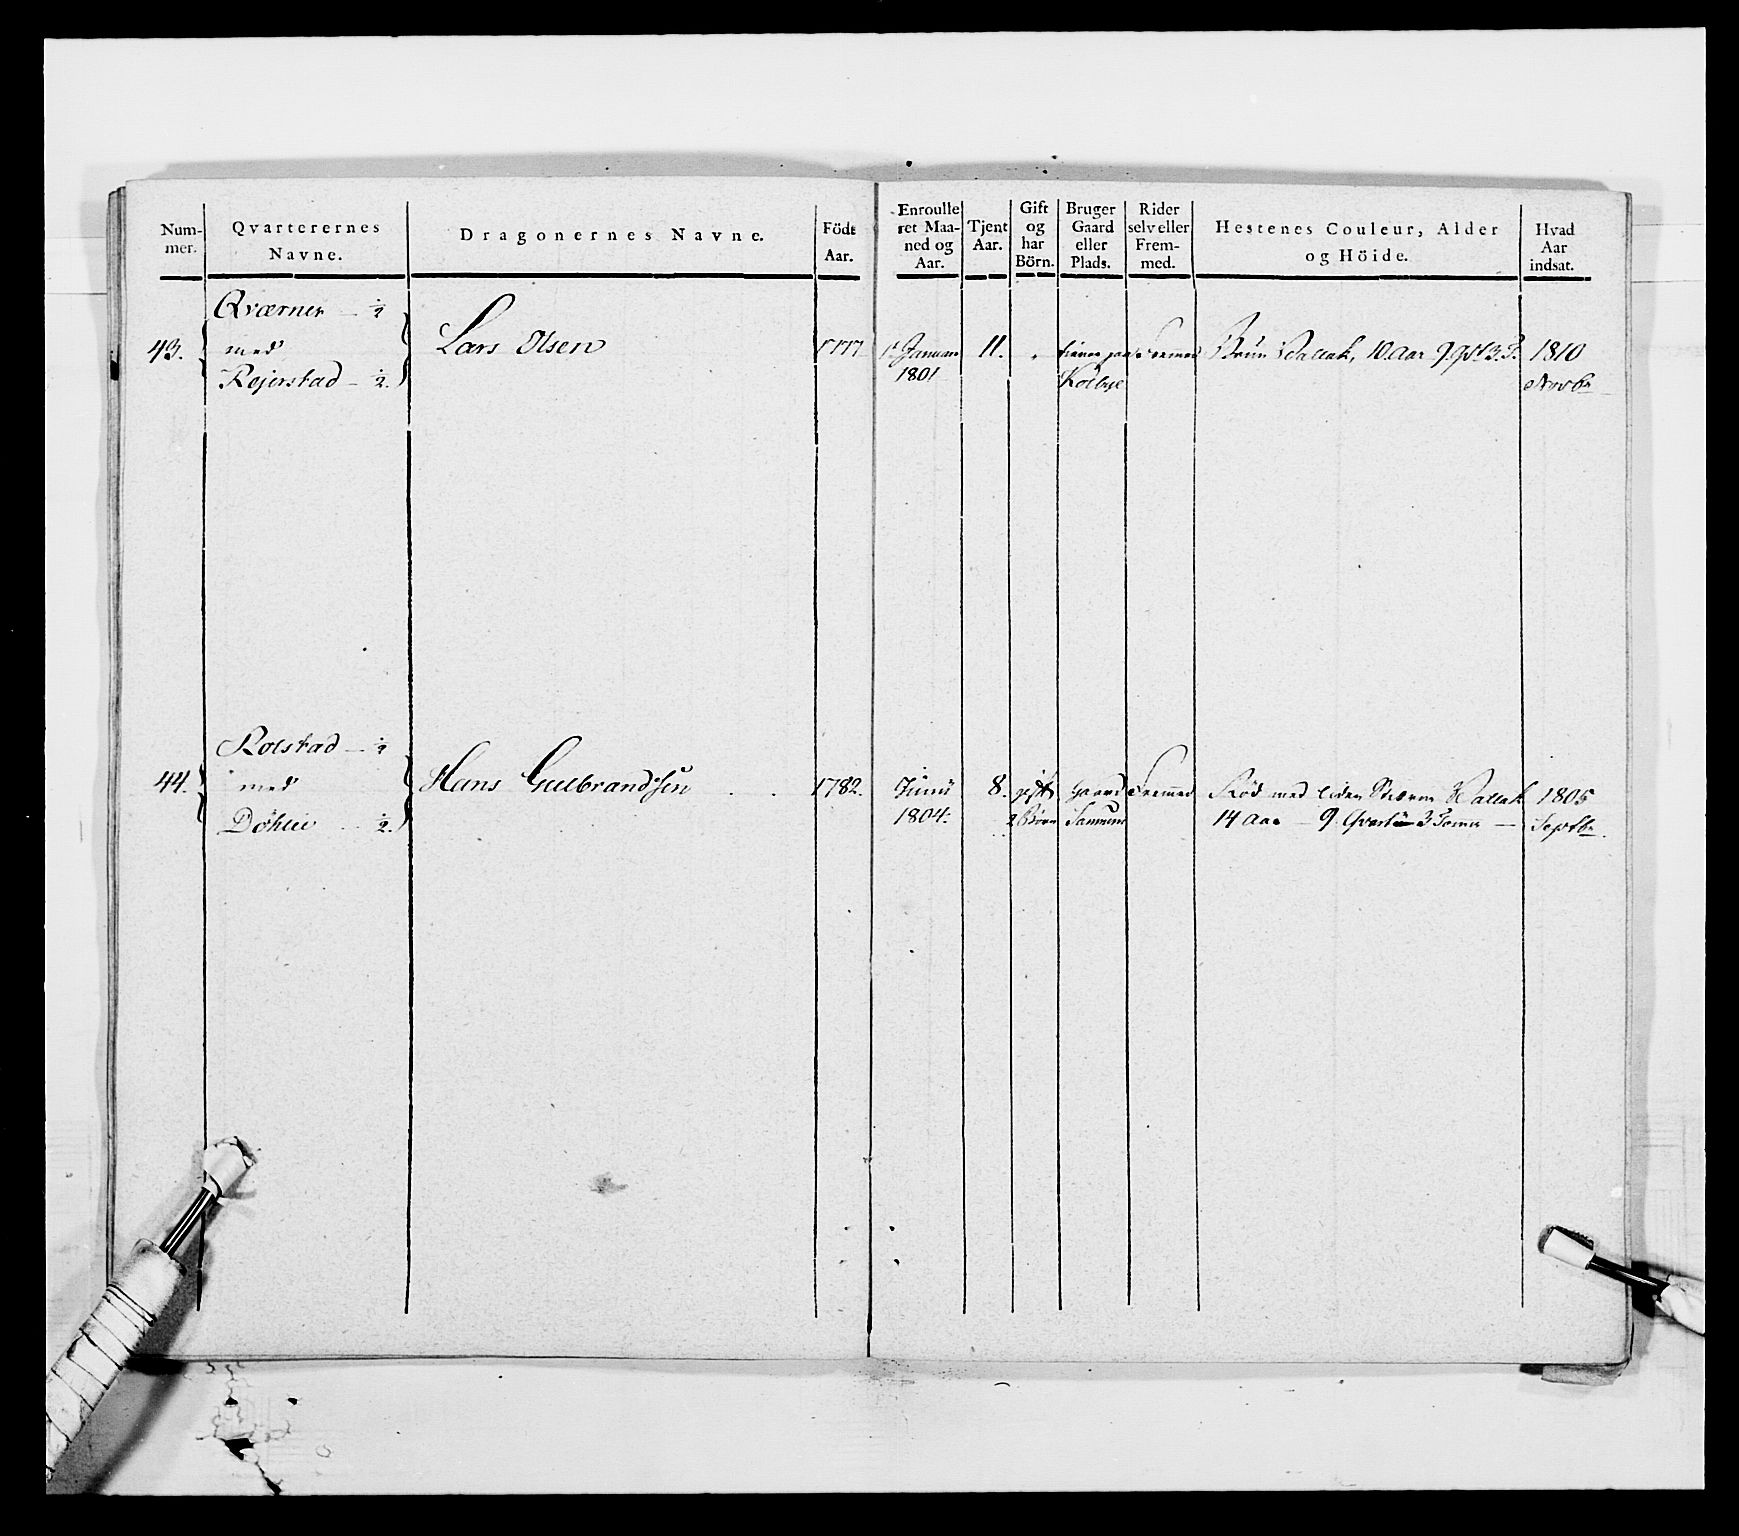 Num-
mer.
Qvarterernes
Navne.
Dragonernes Navne.
Födt
Aar.
Enroulle
ret Maa-
ned og
Aar.
Tjent
Aar.
Gift
og
har
Börn.
Bruger
Gaard
eller
Plads.
Rider
selv eller
Frem-
med.
Hestenes Couleur, Alder
og Höide.
Hvad
Aar
indsat.
Qværner — ½
43. med
Rejerstad — ½
Lars Olsen
1777
Januar
1801
11.
tiener paa
Kolbye
Fremed
Brun Vallak, 10 Aar 9 Qvt 3 T.
1810
Novbr
Rolstad — ½
44. med
Döhlie ½
Hans Gulbrandsen
1782.
Junii
1804.
8.
gift
2 Börn
Gaard
Fremmed
Röd med liden Stierne Vallak
14 Aar — 9 Qvarteer 3 Tomer —
1805
Septbr.